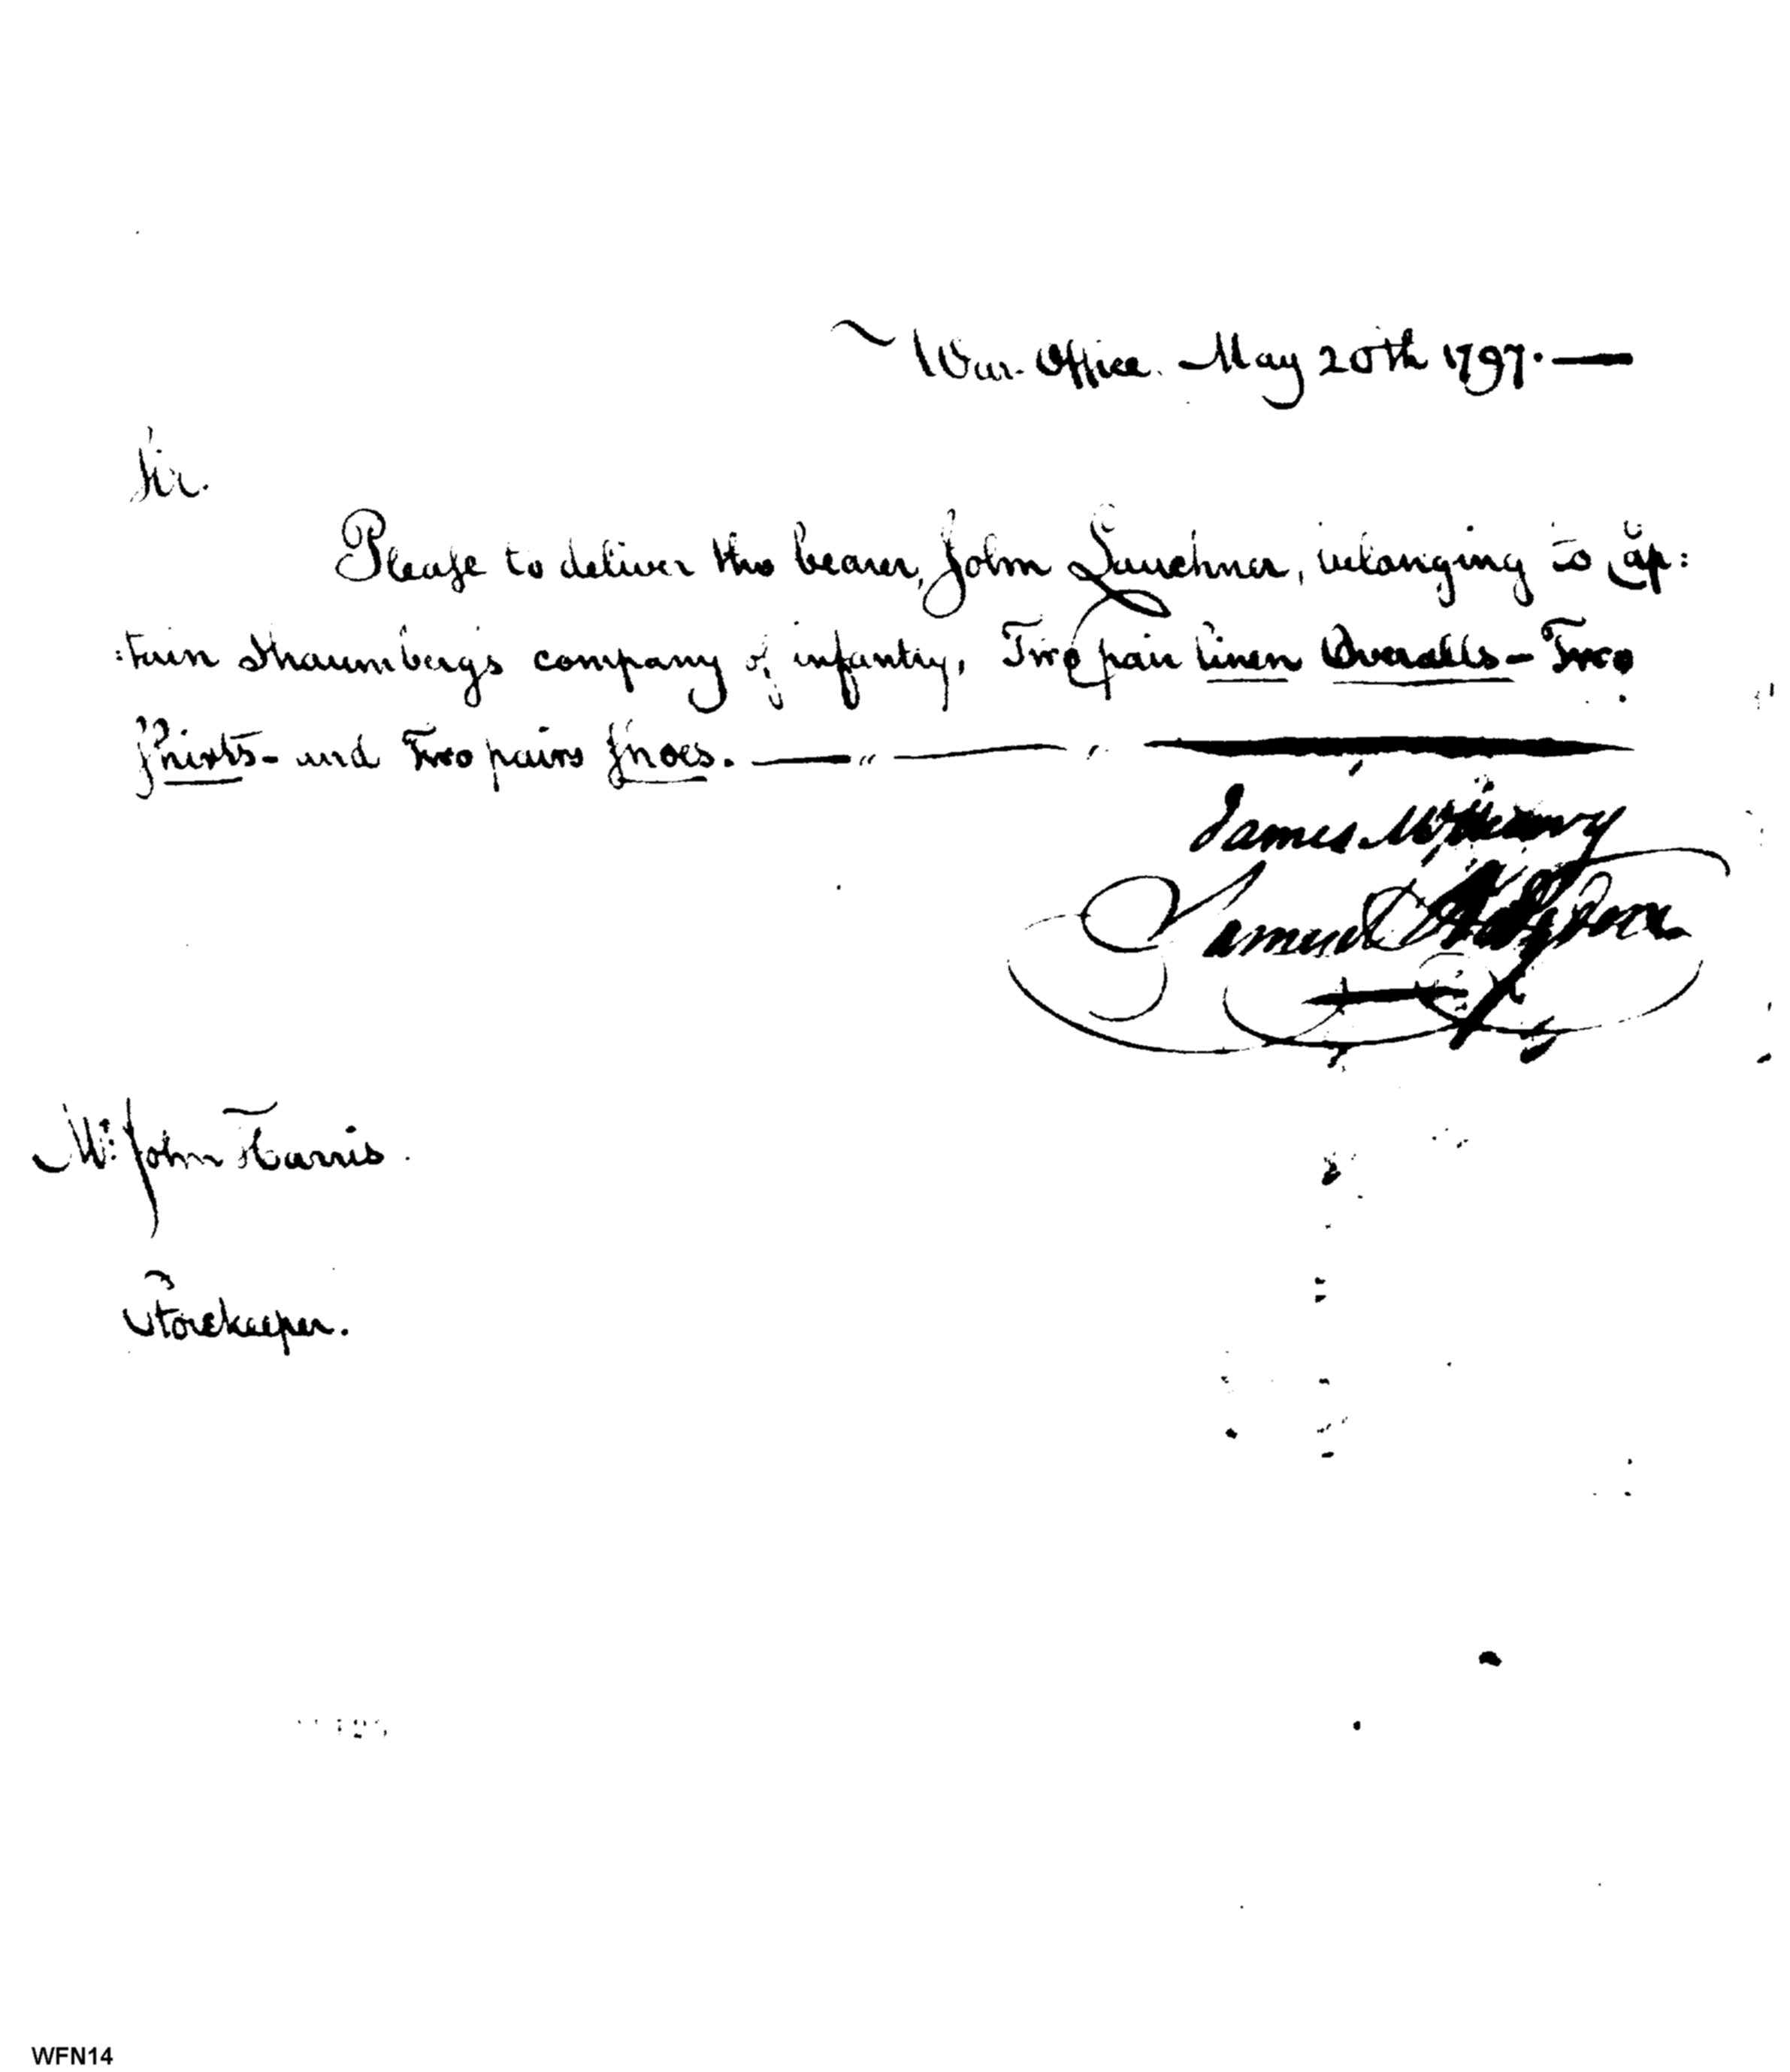 War Office. May 20th 1797.
Sir.
Please to deliver the bearer, John Lauchner, belonging to Cap:
:tain Shaumbergs company of infantry, Two pair linen Overalls – Two
Shirts – and Two pairs Shoes.
James McHenry
Samuel Hodgdon
Mr. John Harris.
Storekeeper.
WFN14